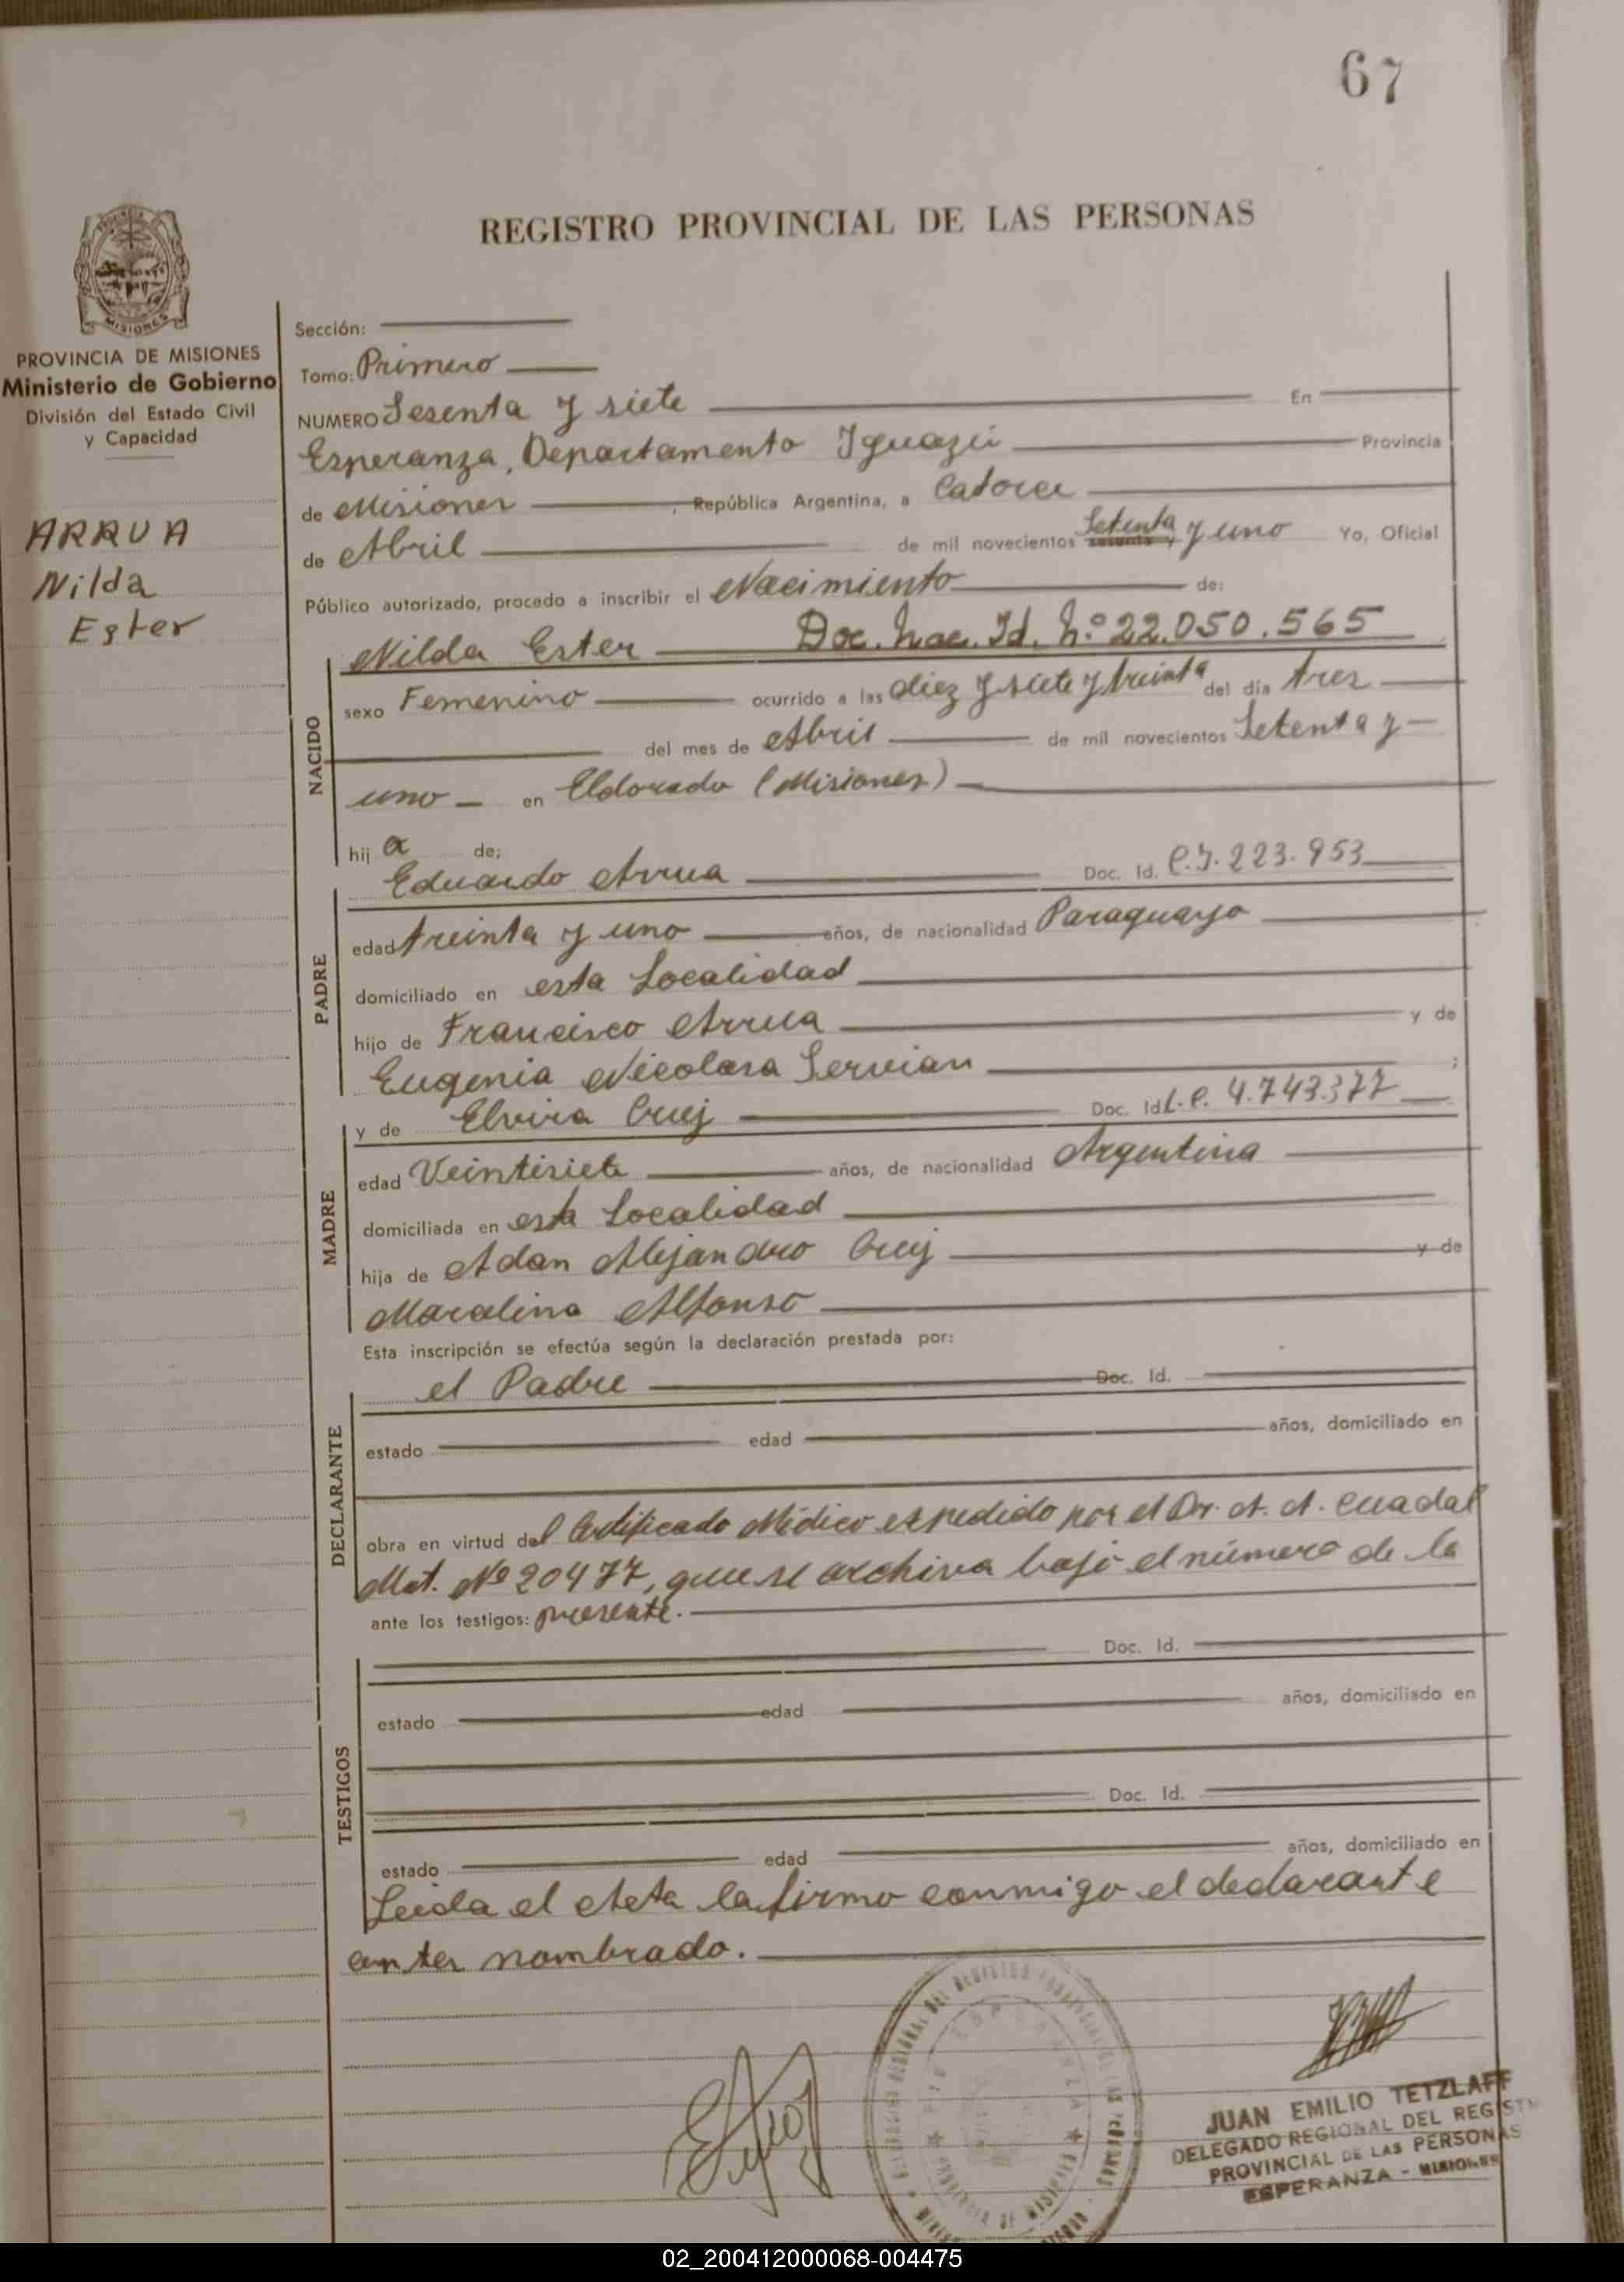 67
REGISTRO PROVINCIAL DE LAS PERSONAS
MISIONES
PROVINCIA DE MISIONES
Ministerio de Gobierno
División del Estado Civil
y Capacidad
ARRUA
Nilda
Ester
Sección:
Tomo: Primero
NUMERO Sesenta y siete En
Esperanza, Departamento Iguazú Provincia
de Misiones, República Argentina, a Catorce
de Abril de mil novecientos sesenta y Setenta y uno Yo, Oficial
Público autorizado, procedo a inscribir el Nacimiento de:
Nilda Ester Doc. Nac. Id. Nº 22.050.565
NACIDO
sexo Femenino ocurrido a las diez y siete y treinta del día tres
del mes de Abril de mil novecientos Setenta y
uno en Eldorado (Misiones)
hij a de;
Eduardo Arrua Doc. Id. C.I. 223.953
PADRE
edad treinta y uno años, de nacionalidad Paraguayo
domiciliado en esta Localidad
hijo de Francisco Arrua y de
Eugenia Nicolasa Servian ;
y de Elvira Doc. Id L.C. 4.743.377
MADRE
edad Veintisiete años, de nacionalidad Argentina
domiciliada en esta Localidad
hija de Adan Alejandro y de
Alfonso
Esta inscripción se efectúa según la declaración prestada por:
el Padre Doc. Id.
DECLARANTE
estado edad años, domiciliado en
obra en virtud del Certificado Médico espedido por el Dr. A. A. Cuadal
Mat. Nº 20477, que se archiva bajo el número de la
ante los testigos: presente.
Doc. Id.
TESTIGOS
estado edad años, domiciliado en
Doc. Id.
estado edad años, domiciliado en
Leida el Acta la firmo conmigo el declarante
antes nombrado.
ESPERANZA
JUAN EMILIO TETZLAFF
DELEGADO REGIONAL DEL REGISTRO
PROVINCIAL DE LAS PERSONAS
ESPERANZA - MISIONES
02_200412000068-004475